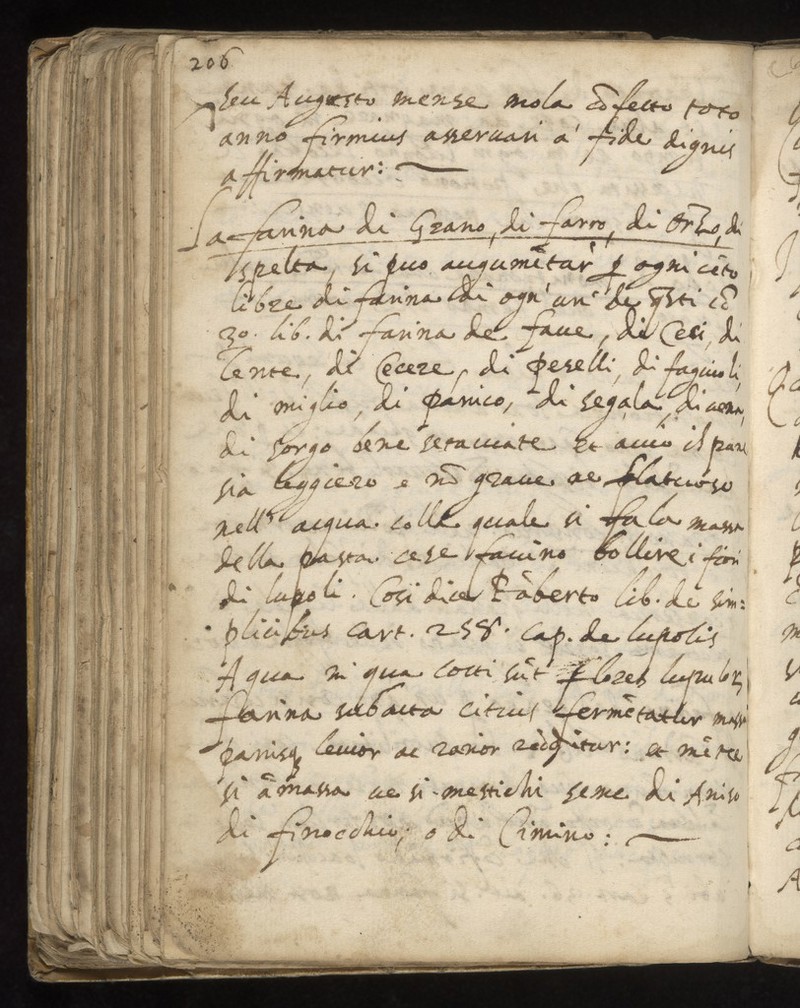 206
seu Augusto mense mola cõfecto toto
anno firmius asseruari a' fide dignis
affirmatur:
La farina di Grano, di farro, di Orzo, di
spelta, si puo augumẽtar' p ogni cẽto
libre di farina di ogn' un' de qsti cõ
30. lib. di farina de faue, di Cesi, di
lente, di Cecere, di peselli, di fagiuoli,
di miglio, di panico, di segala, di uena,
di sorgo bene setacciate et acciò il pane
sia leggiero e nõ graue ne flatuoso
nell' acqua colla quale si fa la massa
della pasta ce se faccino bollire i fiori
di lupoli. Cosi dice Roberto lib. de sim:
plicibus cart. 258. cap. de lupolis
Aqua in qua cocti sũt flores lupulorũ
farina subacta citius fermẽtatur massa
panisq leuior ac rarior redditur: et mẽtre
si ãmassa ue si mestichi seme di Aniso
di finocchio; o di Cimino: